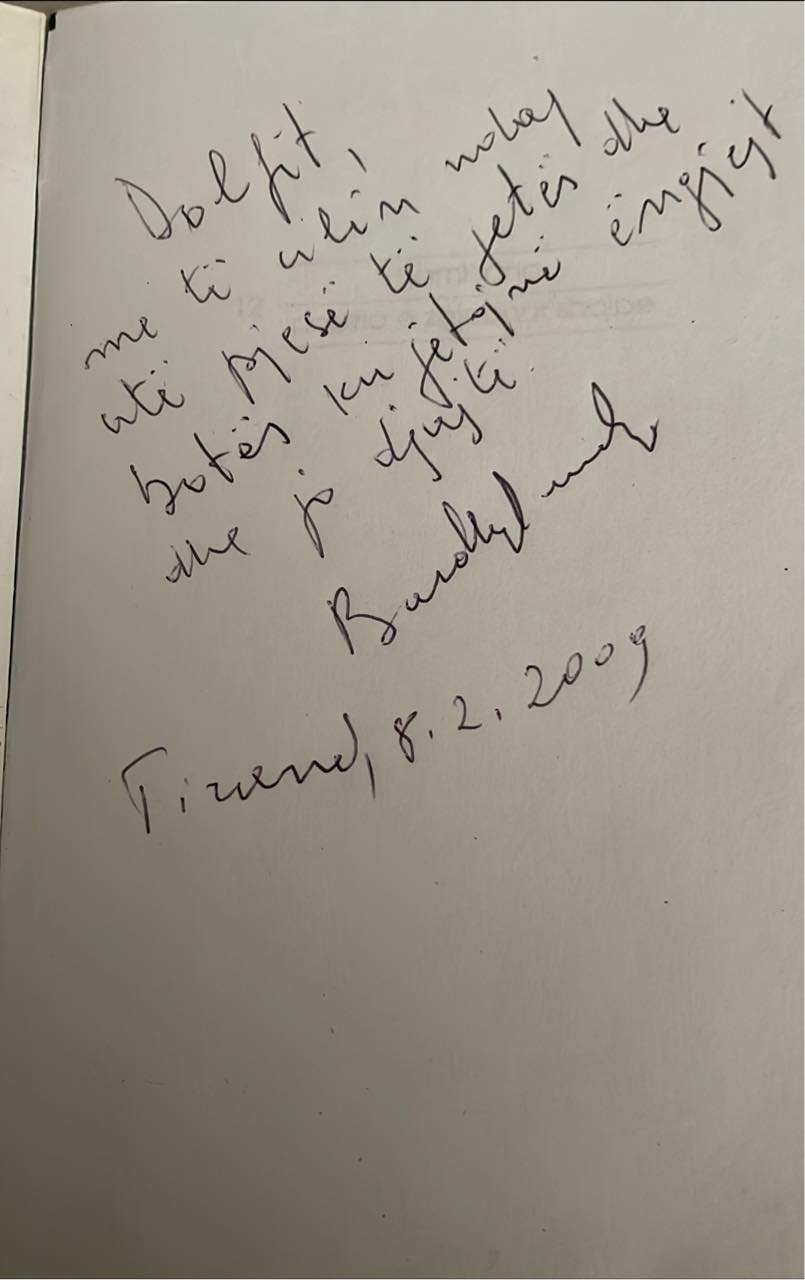 Dolfit,
me të cilin ndaj
atë pjesë të jetës dhe
botës ku jetojnë ëngjëjt
dhe jo djajtë.
Bardhyl
Tiranë, 8.2.2009